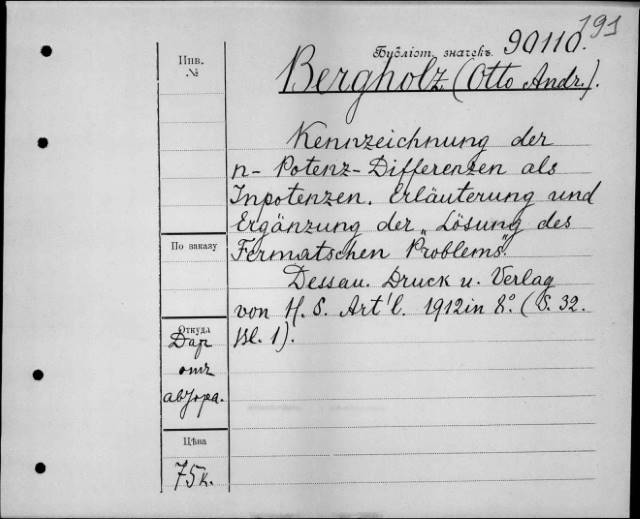 191
Инв.
№
Бубліот. значекъ. 90110.
Bergholz, (Otto Andr.).
Kennzeichnung der
n- Potenz-Differenzen als
Inpotenzen. Erläuterung und
Ergänzung der „Lösung des
Fermatschen Problems".
Dessau. Druck u. Verlag
von H. S. Art'l. 1912 in 8°. (S. 32.
Bl. 1).
По заказу
Откуда
Дар
отъ
автора.
Цѣна
75к.